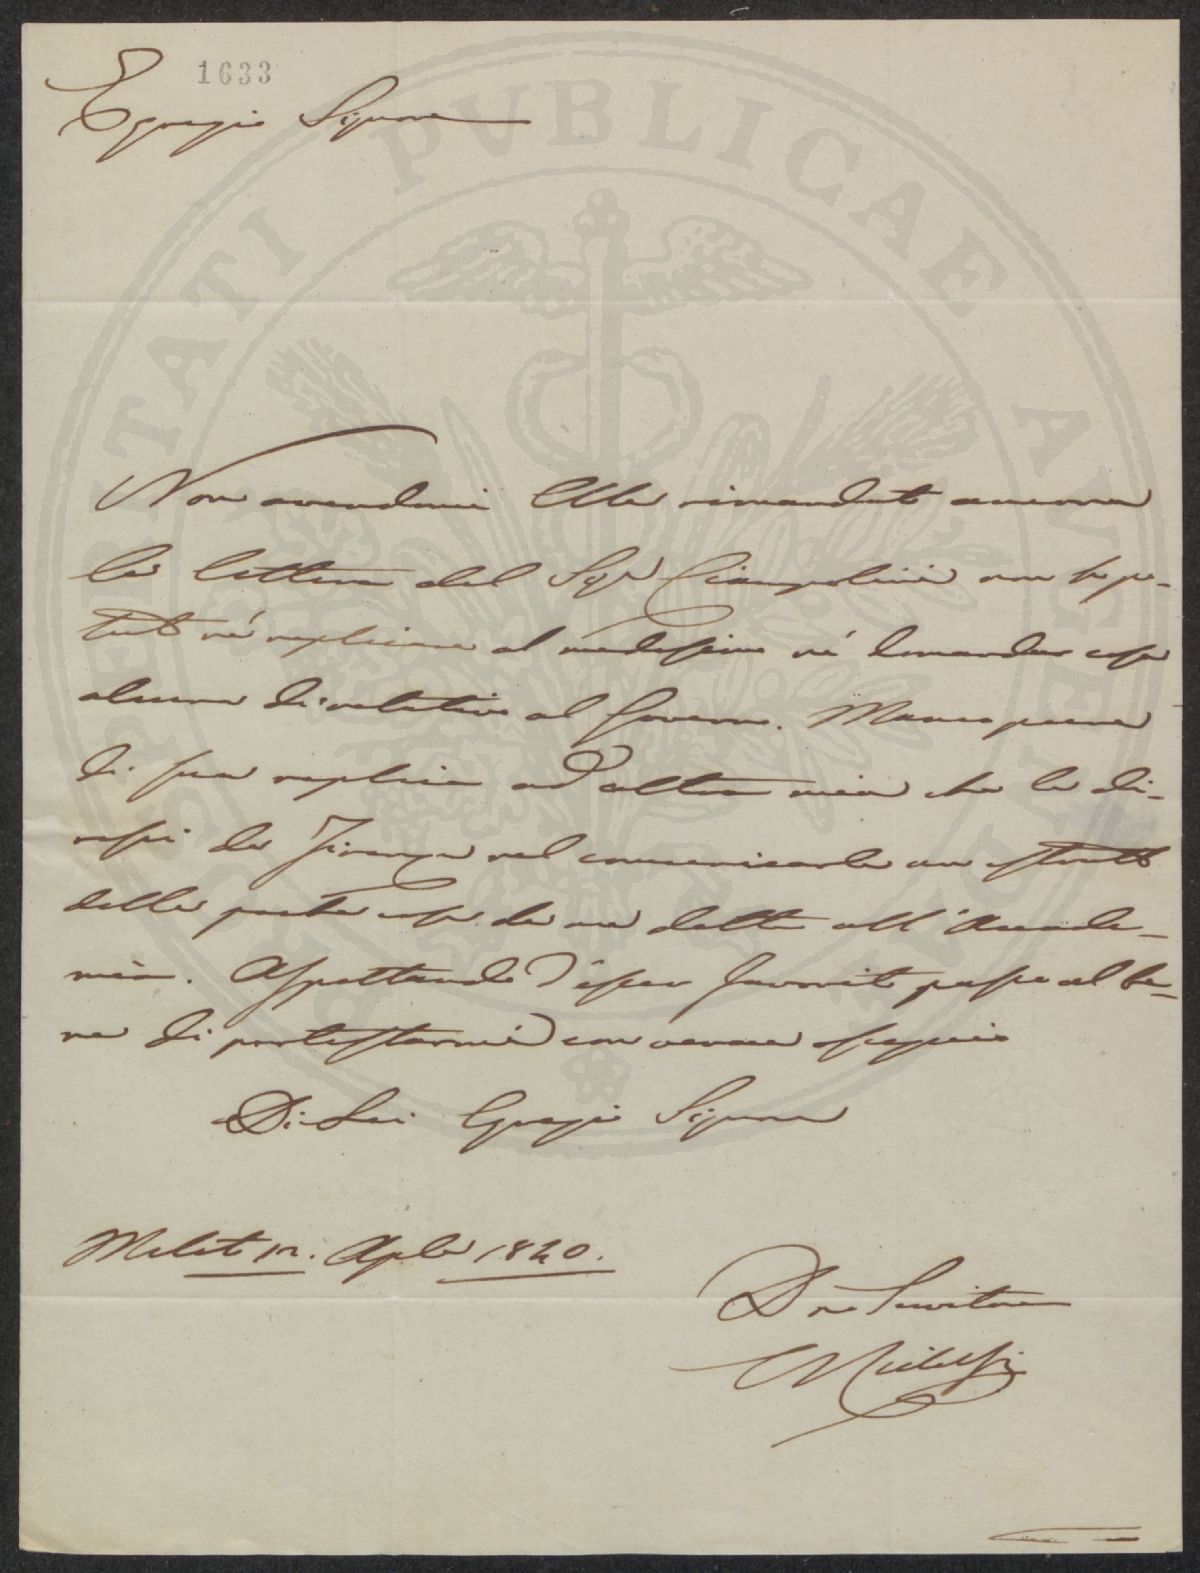 1633
Egregio Signore
Non avendomi Ella rimandato ancora
la lettera del Sigr Ciampolini non ho po-
tuto nè replicare al medesimo nè domandar cosa
alcuna di relativo al Governo. Manco pure
di sua replica ad altra mia che le di-
ressi da Firenze nel comunicarle un estratto
della parte da me detta all'Accade-
mia. Aspettando d'esser favorito passo al be-
ne di protestarmi con verace ossequio
Di Lei Egregio Signore
12. Aple 1840.
D mo Servitore
PVBLICAE